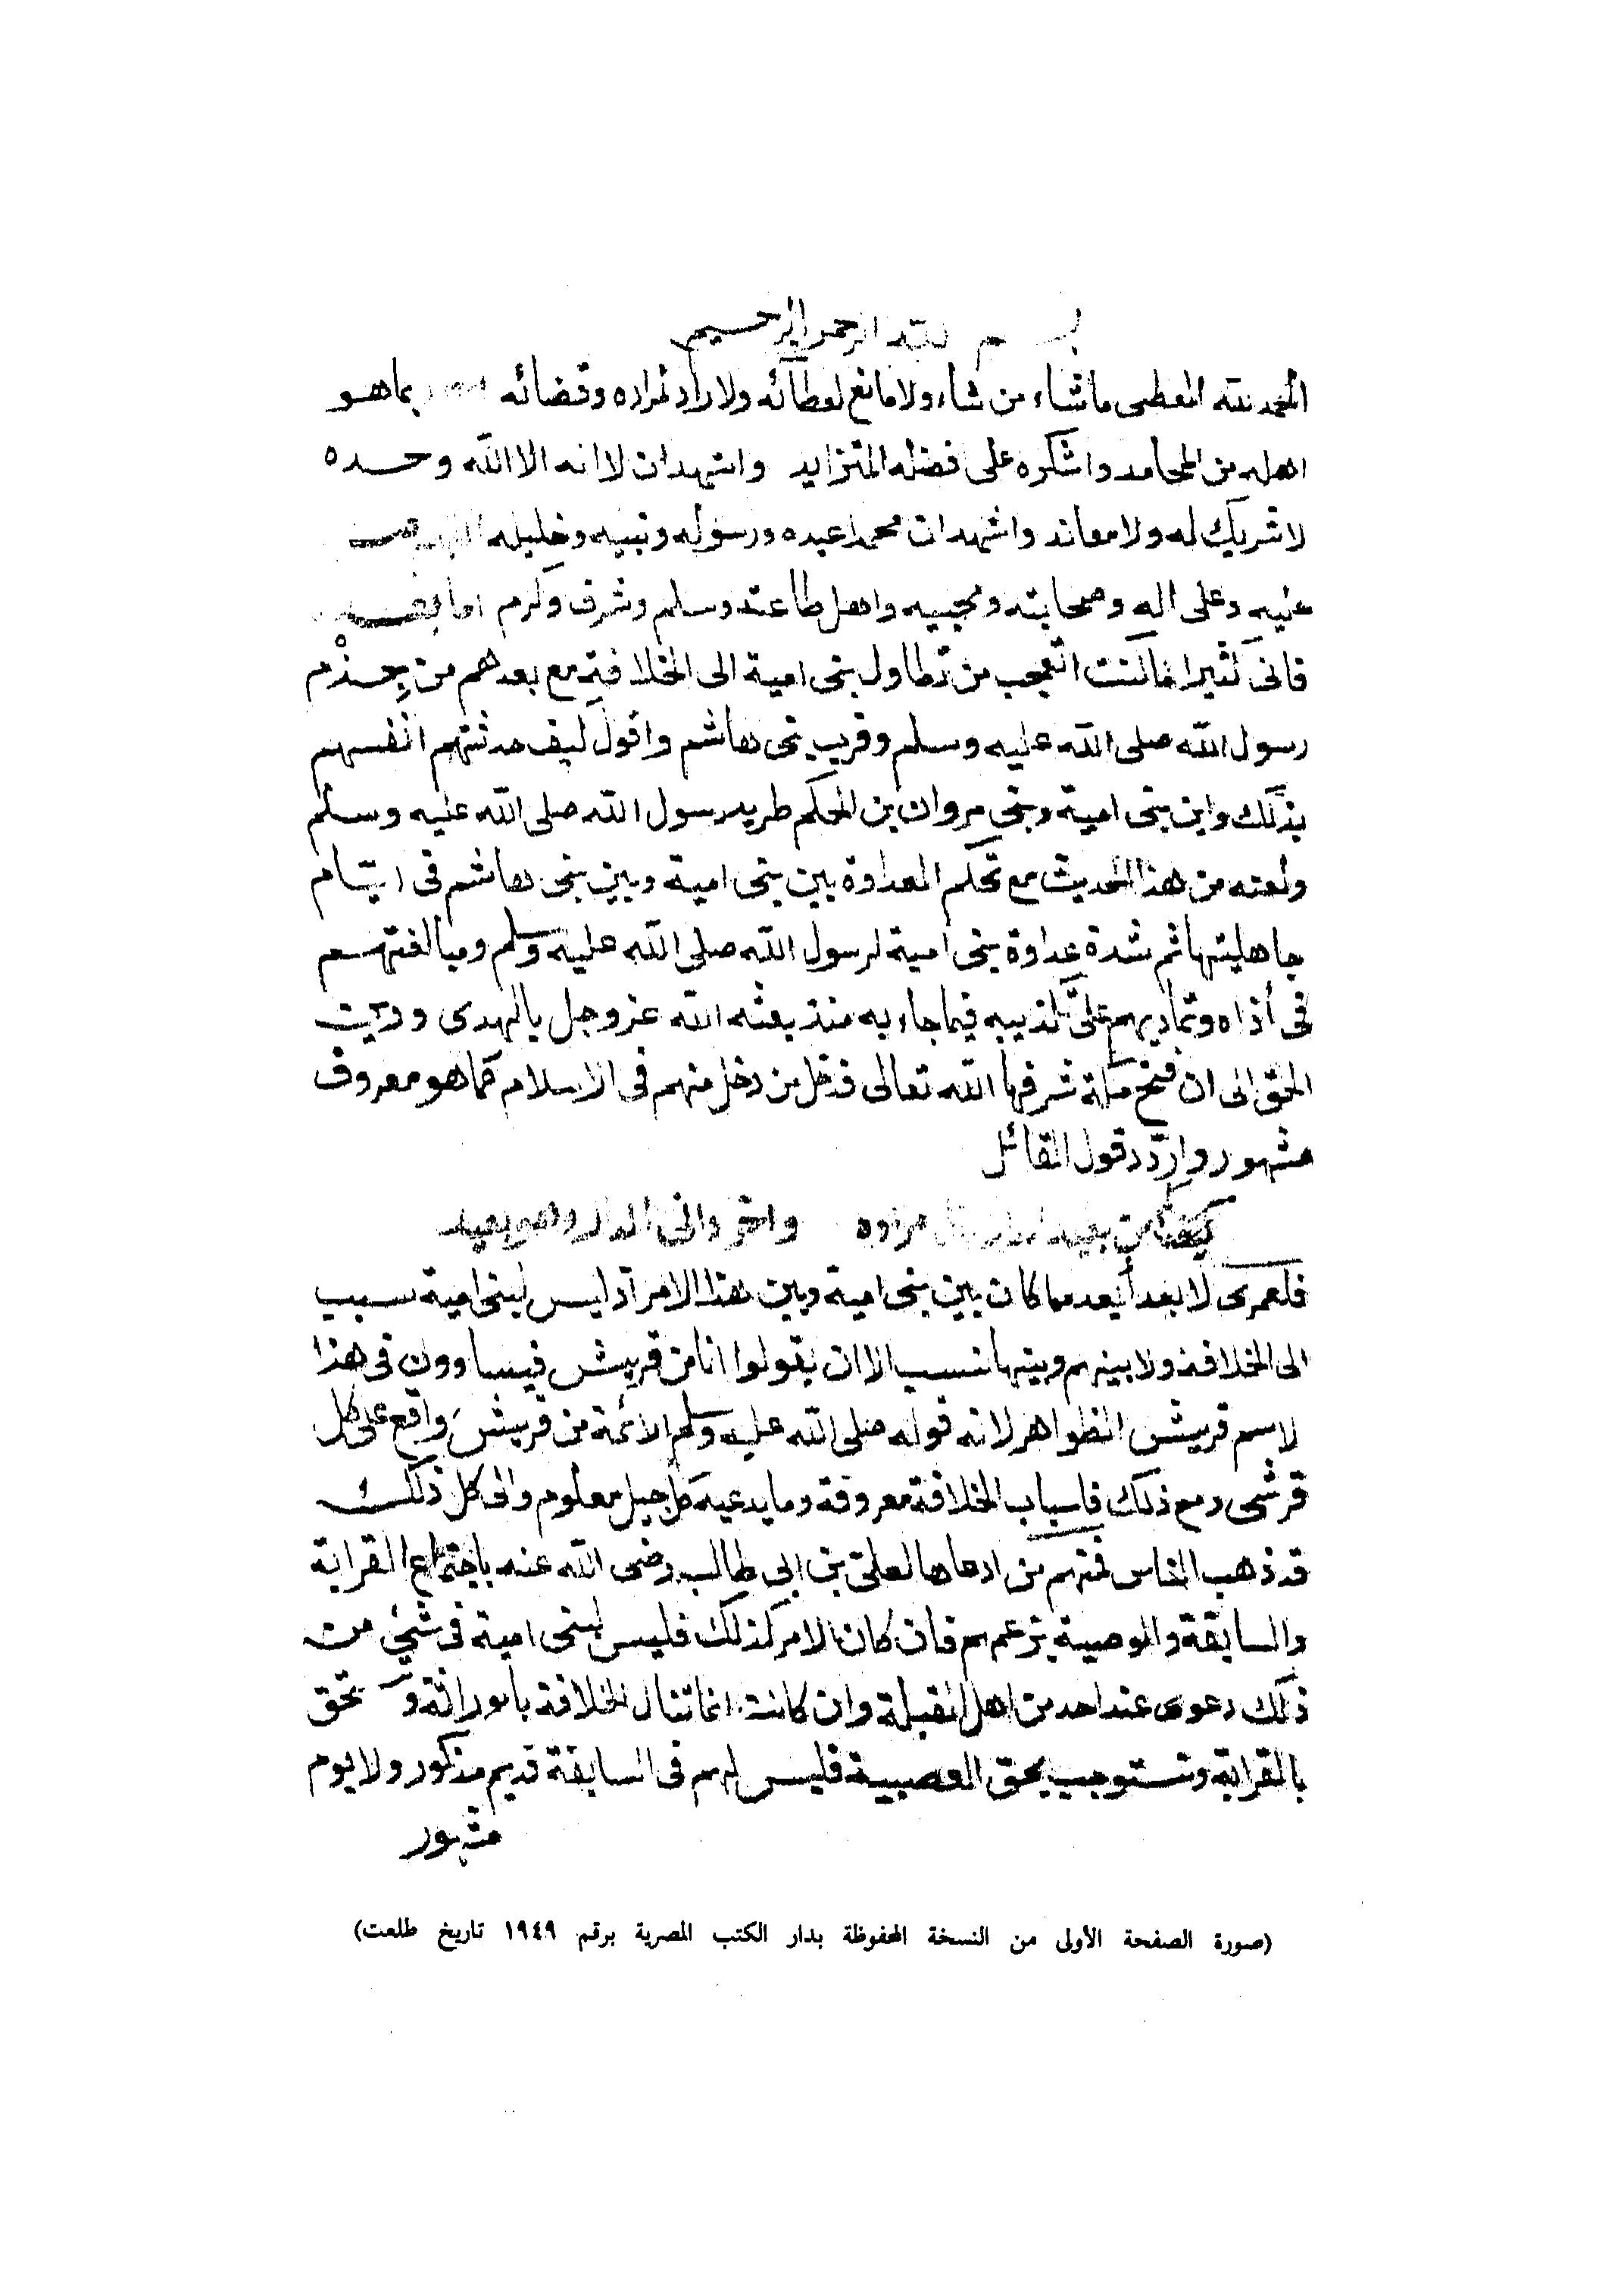 بسم الله الرحمن الرحيم
الحمد لله المعطى ماشاء من شاء ولا مانع لعطائه ولا راد لمراده وقضائه بما هو
اهله من المحامد واشكره على فضله المتزايد واشهد ان لا اله الا الله وحده
لا شريك له ولا معاند واشهد ان محمدا عبده ورسوله ونبيه وخليله
عليه وعلى اله وصحابته ومحبيه واهل طاعته وسلم وشرف وكرم اما بعد
فانى كثيرا ما كنت اتعجب من تطاول بنى امية الى الخلافة مع بعدهم من جِذْم
رسول الله صلى الله عليه وسلم وقرب بنى هاشم واقول كيف حدثتهم انفسهم
بذلك واين بنى امية وبنى مروان بن الحكم طريد رسول الله صلى الله عليه وسلم
ولعنه من هذا الحديث مع تحكم العداوة بين بنى امية وبين بنى هاشم فى ايام
جاهليتها ثم شدة عداوة بنى امية لرسول الله صلى الله عليه وسلم ومبالغتهم
فى أذاه وتماديهم على تكذيبه فيما جاء به منذ بعثه الله عز وجل بالهدى ودين
الحق الى ان فتح مكة شرفها الله تعالى فدخل من دخل منهم فى الاسلام كما هو معروف
مشهور واردّد قول القائل
كم من بعيد الدار نال مراده واخر دانى الدار وهو بعيد
فلعمرى لا بعد أبعد مما كان بين بنى امية وبين هذا الامر اذ ليس لبنى امية سبب
الى الخلافة ولا بينهم وبينها نسب الا ان يقولوا انا من قريش فيساوون فى هذا
لاسم قريش الظواهر لانه قوله صلى الله عليه وسلم الائمة من قريش واقع على كل
قرشى ومع ذلك فاسباب الخلافة معروفة وما يدعيه كل جيل معلوم والى كل ذلك
قد ذهب الناس فمنهم من ادعاها لعلى بن ابى طالب رضى الله عنه باجتماع القرابة
والسابقة والوصية بزعمهم فان كان الامر كذلك فليس لبنى امية فى شئ من
ذلك دعوى عند احد من اهل القبلة وان كانت انما تنال الخلافة بالوراثة و تحق
بالقرابة وتستوجب بحق العصبية فليس لهم فى السابقة قديم مذكور ولا يوم
مشهور
(صورة الصفحة الأولى من النسخة المحفوظة بدار الكتب المصرية برقم ١٩٤٩ تاريخ طلعت)